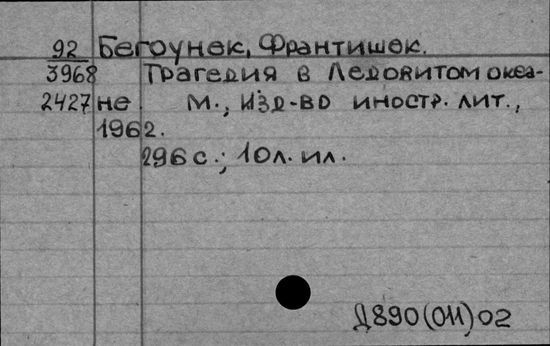 92 Бегоунек, Франтишек.
3968 Трагедия в Ледовитом океа-
2427 не. М., Изд-во иностр. лит.,
1962.
296 с.; 10 л. ил.
Д890(011)02